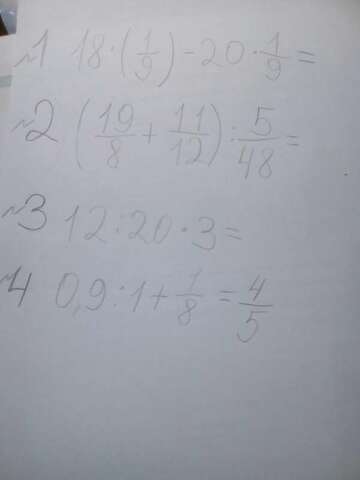 №1 18·(1/9)-20·1/9=
№2 (19/8+11/12):5/48=
№3 12:20·3=
№4 0,9:1+1/8=4/5